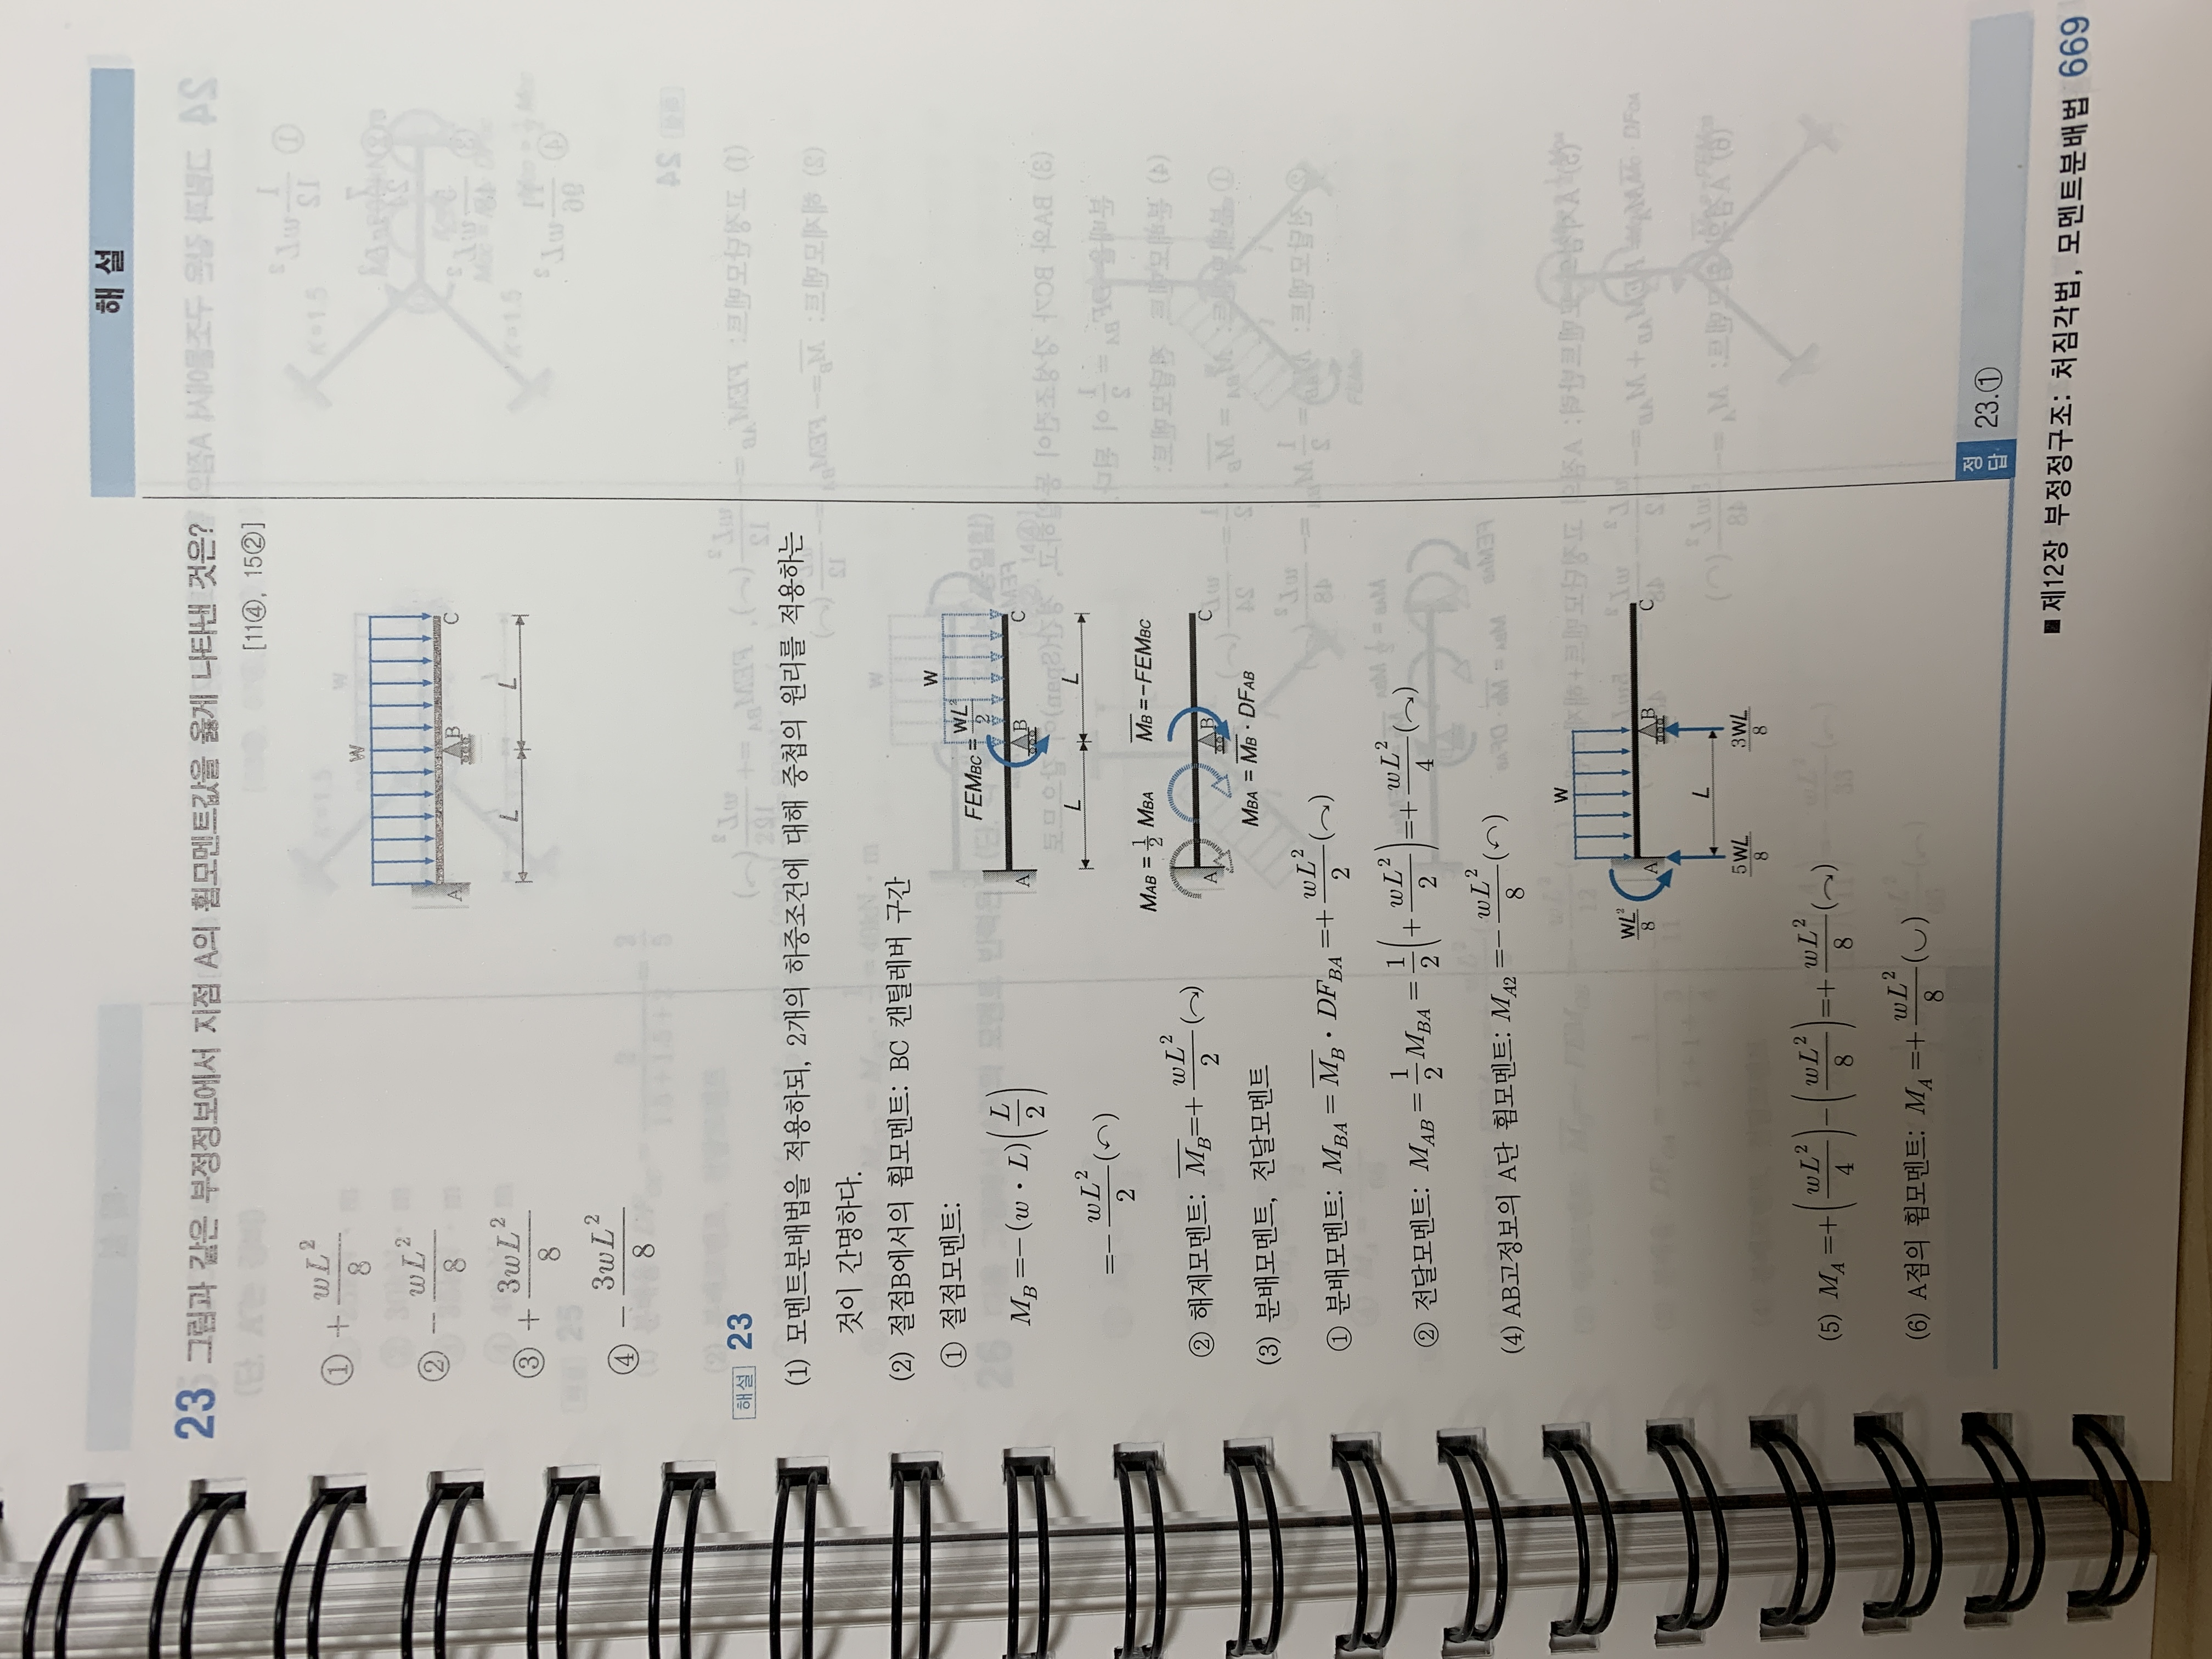 해 설
23 그림과 같은 부정정보에서 지점 A의 휨모멘트값을 옳게 나타낸 것은?
[11④, 15②]
① $+\frac{wL^2}{8}$
② $-\frac{wL^2}{8}$
③ $+\frac{3wL^2}{8}$
④ $-\frac{3wL^2}{8}$
W
A B C
L L
해설 23
(1) 모멘트분배법을 적용하되, 2개의 하중조건에 대해 중첩의 원리를 적용하는
것이 간명하다.
(2) 절점B에서의 휨모멘트: BC 캔틸레버 구간
① 절점모멘트:
$M_B=-(w\cdot L)\left(\frac{L}{2}\right)$
$=-\frac{wL^2}{2}(↶)$
W
$FEM_{BC}=\frac{WL^2}{2}$
A B C
L L
② 해제모멘트: $\overline{M_B}=+\frac{wL^2}{2}(↷)$
$M_{AB}=\frac{1}{2}M_{BA}$ $\overline{M_B}=-FEM_{BC}$
A B C
$M_{BA}=\overline{M_B}\cdot DF_{AB}$
(3) 분배모멘트, 전달모멘트
① 분배모멘트: $M_{BA}=\overline{M_B}\cdot DF_{BA}=+\frac{wL^2}{2}(↷)$
② 전달모멘트: $M_{AB}=\frac{1}{2}M_{BA}=\frac{1}{2}\left(+\frac{wL^2}{2}\right)=+\frac{wL^2}{4}(↷)$
(4) AB고정보의 A단 휨모멘트: $M_{A2}=-\frac{wL^2}{8}(↶)$
W
$\frac{WL^2}{8}$
A B C
L
$\frac{5WL}{8}$ $\frac{3WL}{8}$
(5) $M_A=+\left(\frac{wL^2}{4}\right)-\left(\frac{wL^2}{8}\right)=+\frac{wL^2}{8}(↷)$
(6) A점의 휨모멘트: $M_A=+\frac{wL^2}{8}(◡)$
정답 23.①
■ 제12장 부정정구조: 처짐각법, 모멘트분배법 669